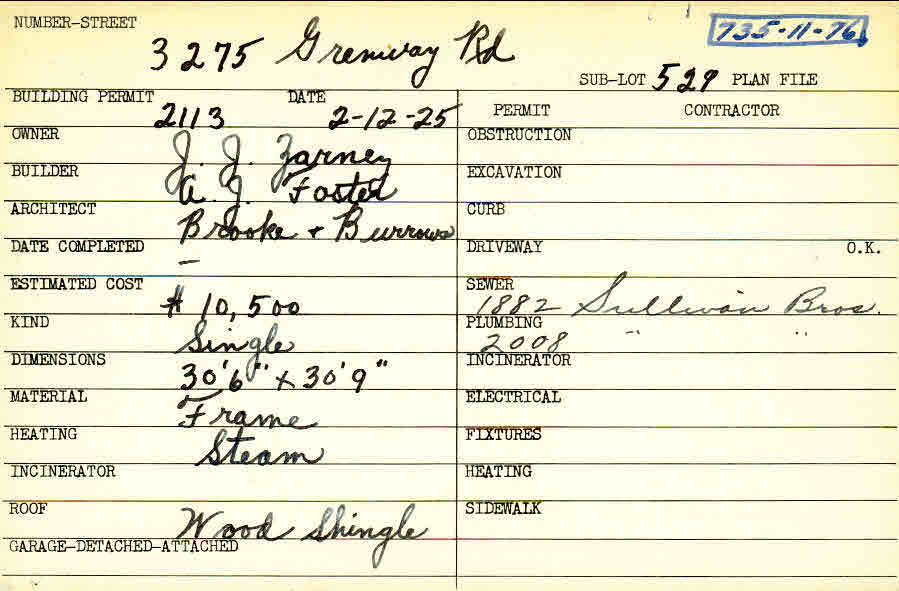 NUMBER-STREET
735-11-76
3275 Grenway Rd
SUB-LOT 529 PLAN FILE
BUILDING PERMIT DATE
2113 2-12-25
OWNER
J. J. Zarney
BUILDER
A. J. Foster
ARCHITECT
Brooke + Burrows
DATE COMPLETED
—
ESTIMATED COST
$ 10,500
KIND
Single
DIMENSIONS
30'6" x 30'9"
MATERIAL
Frame
HEATING
Steam
INCINERATOR
ROOF
Wood Shingle
GARAGE-DETACHED-ATTACHED
PERMIT CONTRACTOR
OBSTRUCTION
EXCAVATION
CURB
DRIVEWAY O.K.
SEWER
1882 Sullivan Bros.
PLUMBING
2008 " "
INCINERATOR
ELECTRICAL
FIXTURES
HEATING
SIDEWALK